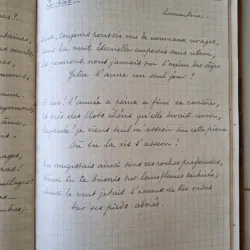 Le Lac
Lamartine.
Ainsi, toujours poussés vers de nouveaux rivages,
Dans la nuit éternelle emportés sans retour,
Ne pourrons-nous jamais sur l'océan des âges
Jeter l'ancre un seul jour ?
O lac ! l'année à peine a fini sa carrière,
Et près des flots chéris qu'elle devait revoir,
Regarde ! je viens seul m'asseoir sur cette pierre
Où tu la vis s'asseoir !
Tu mugissais ainsi sous ces roches profondes,
Ainsi tu te brisais sur leurs flancs déchirés,
Ainsi le vent jetait l'écume de tes ondes
Sur ses pieds adorés.